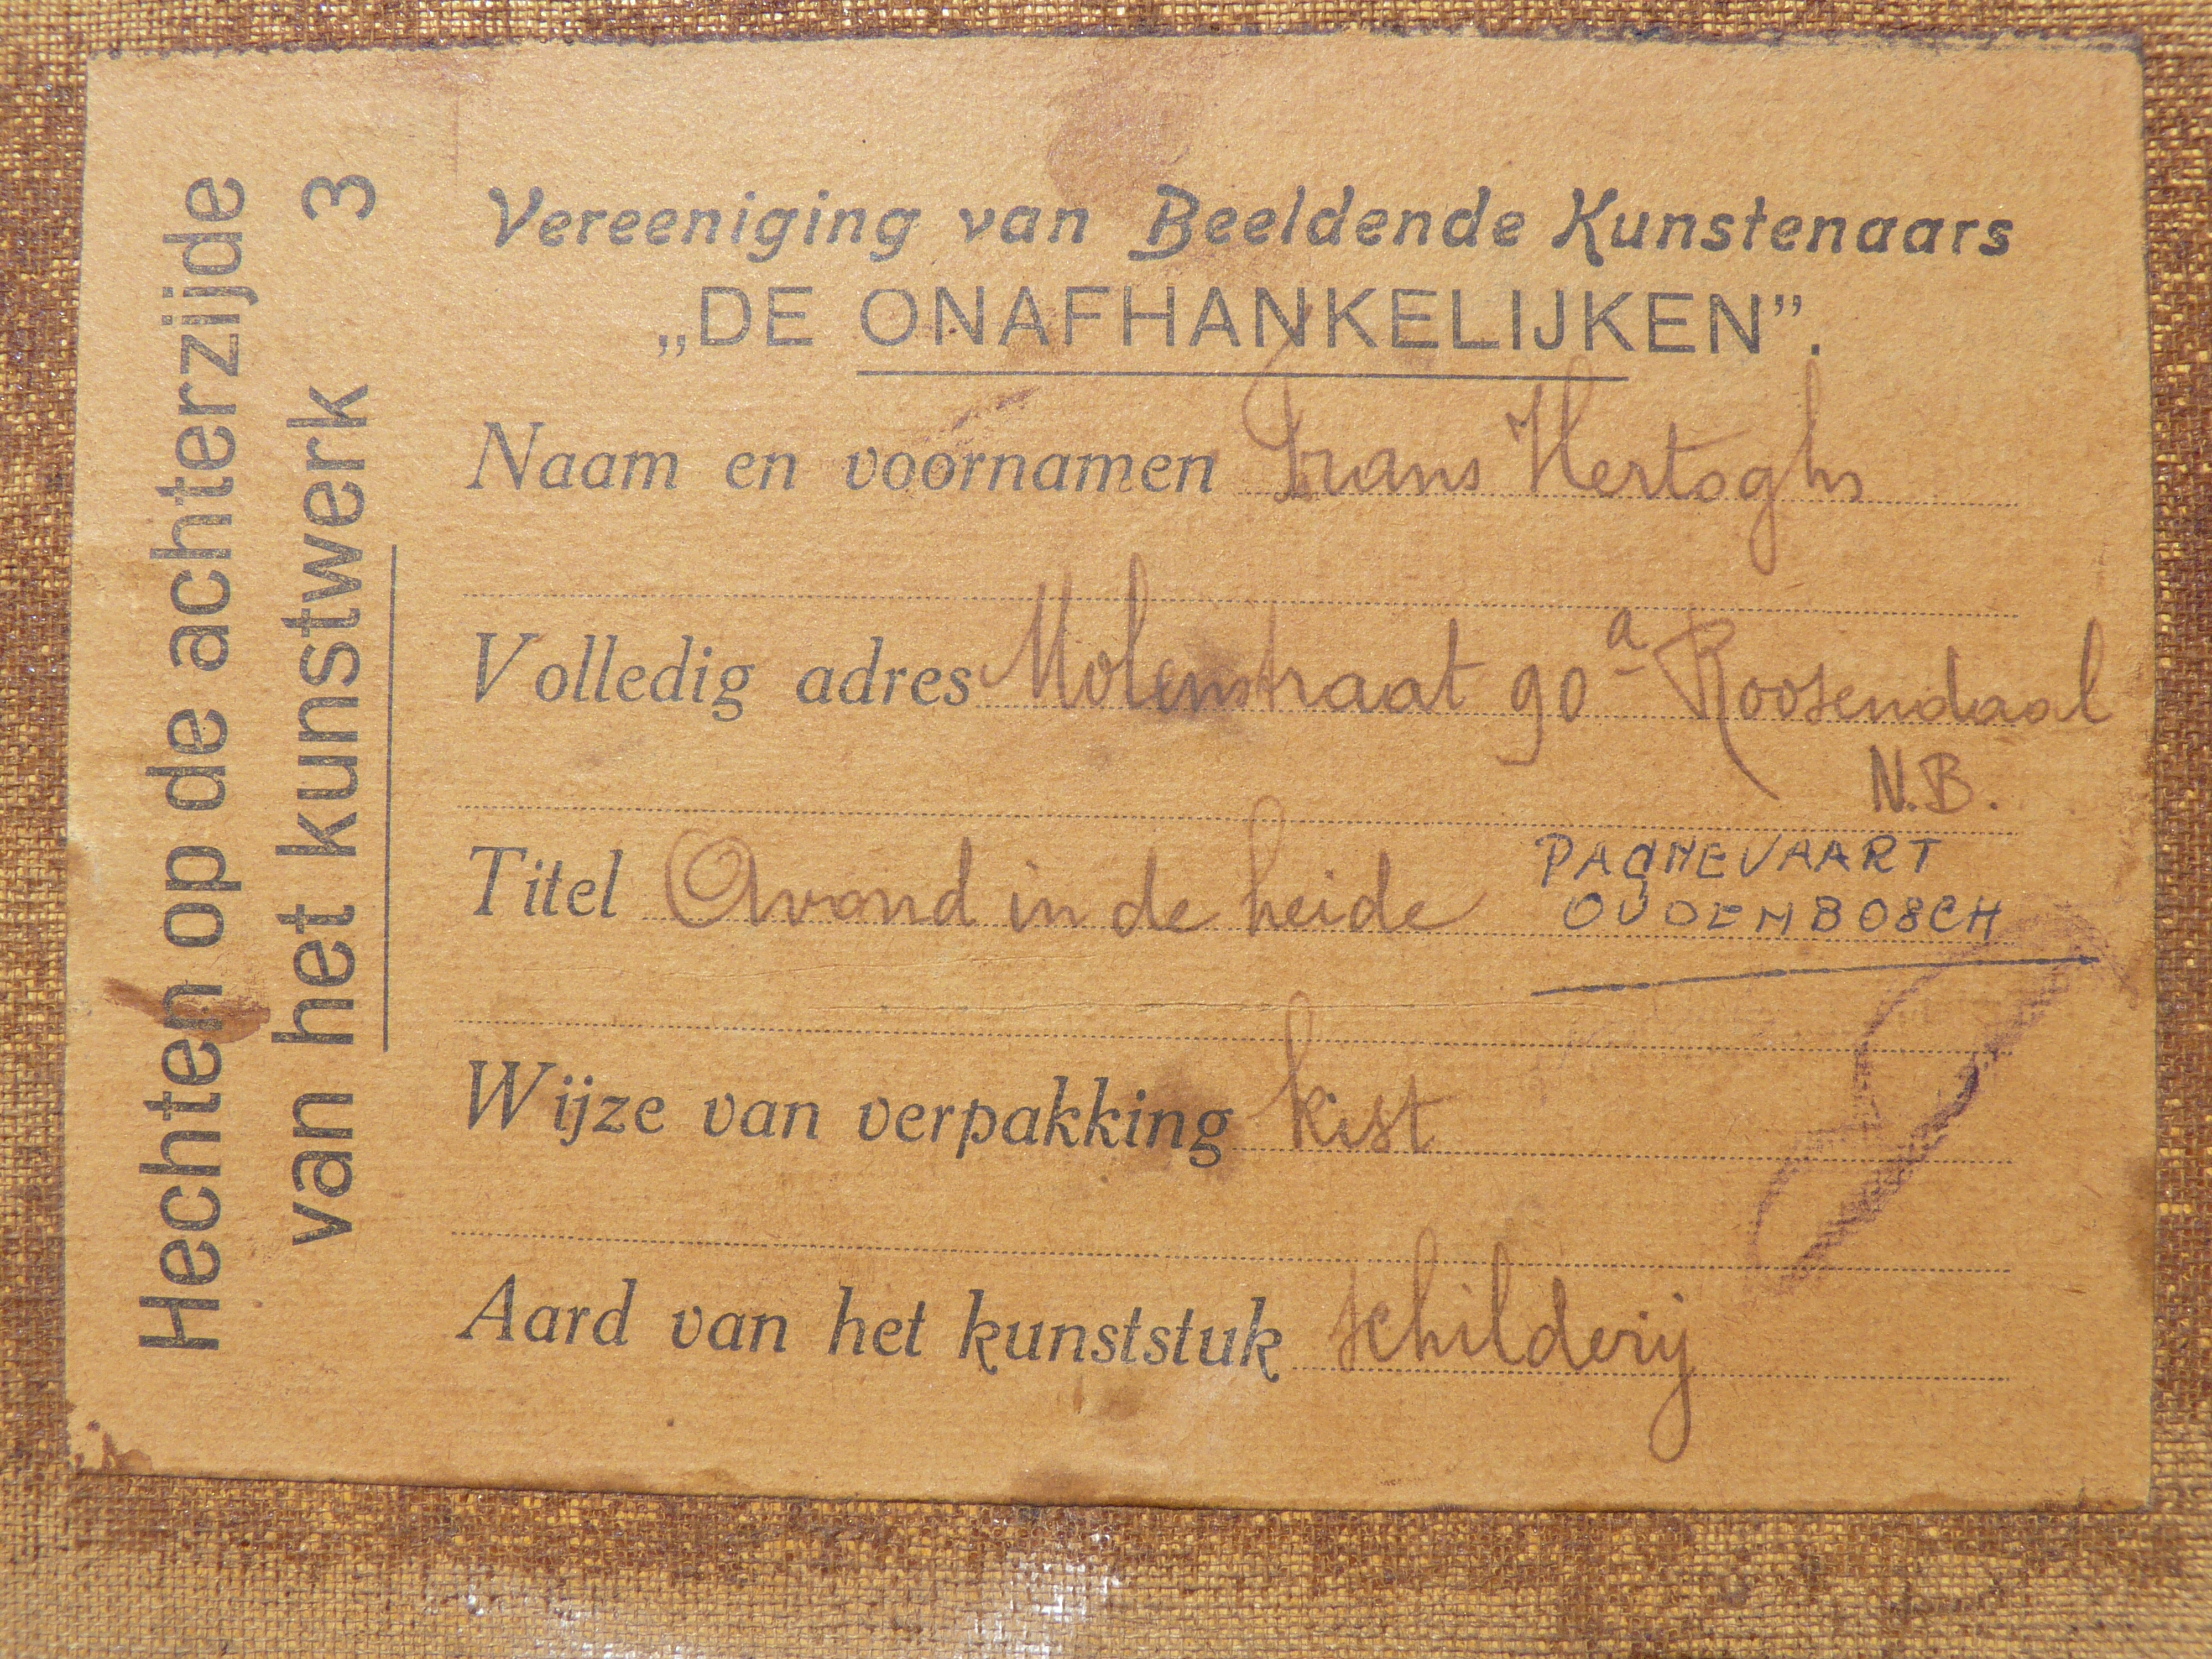 Hechten op de achterzijde
van het kunstwerk 3
Vereeniging van Beeldende Kunstenaars
„DE ONAFHANKELIJKEN”.
Naam en voornamen Frans Hertoghs
Volledig adres Molenstraat 90a Roosendaal
N.B.
PAGNEVAART
Titel Avond in de heide OUDENBOSCH
Wijze van verpakking kist
Aard van het kunststuk schilderij